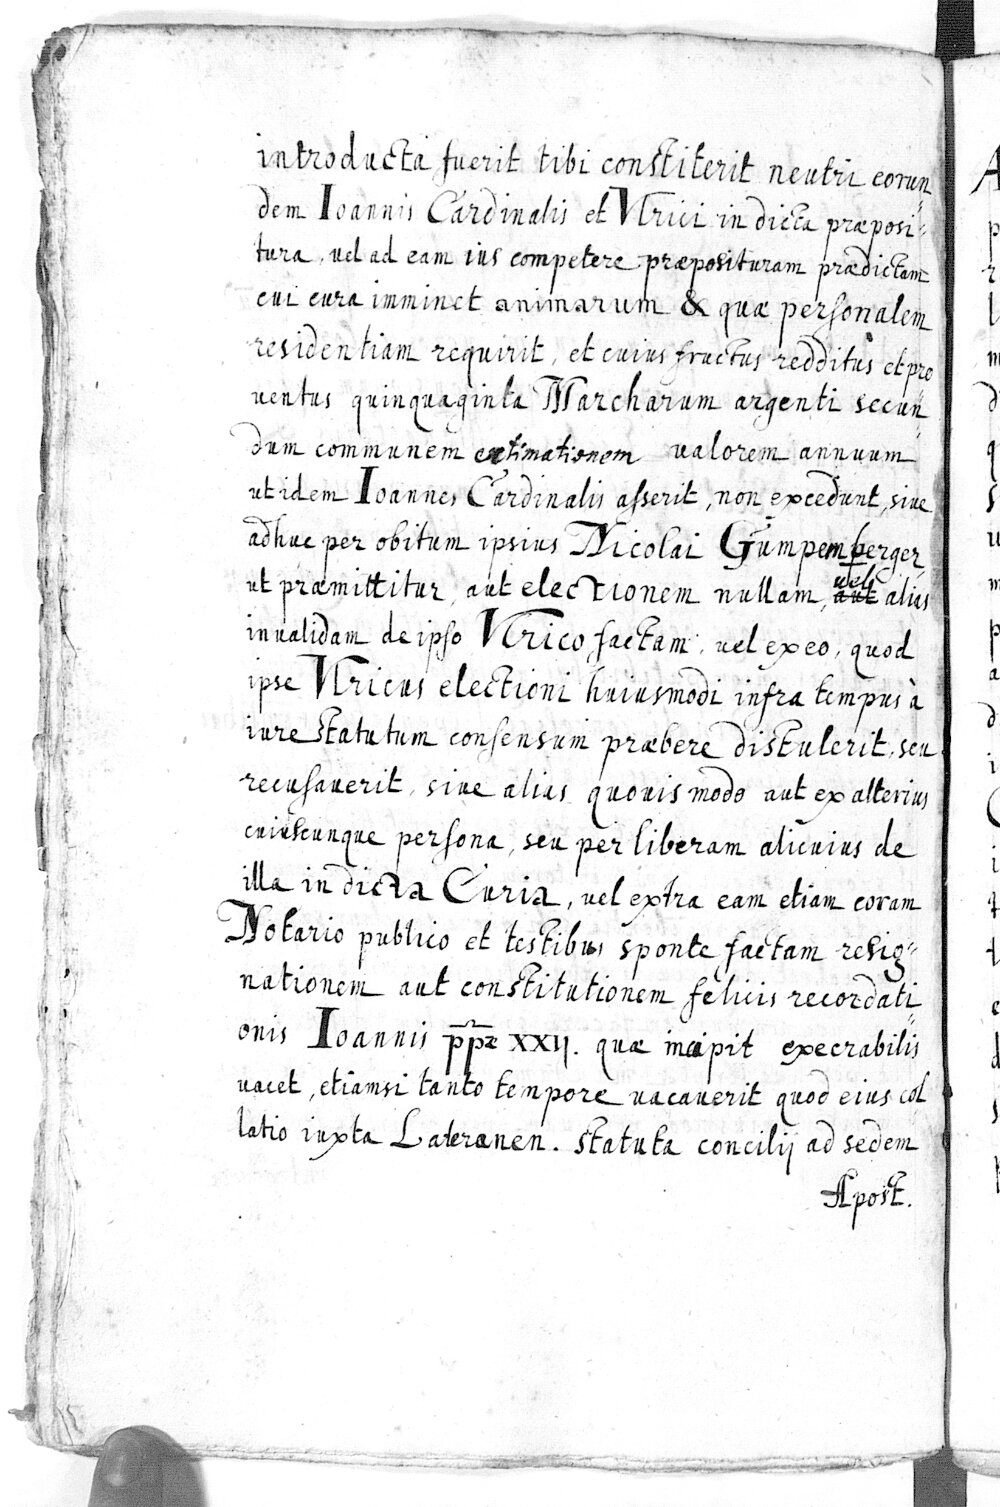 introducta fuerit tibi constiterit neutri eorun=
dem Ioannis Cardinalis et Vlrici in dicta præposi=
tura, vel ad eam ius competere præposituram prædictam
cui cura imminet animarum & quæ personalem
residentiam requirit, et cuius fructus redditus et pro
ventus quinquaginta Marcharum argenti secun=
dum communem extimationem valorem annuum
ut idem Ioannes Cardinalis asserit, non excedunt, siue
adhuc per obitum ipsius Nicolai Gumpemberger,
ut præmittitur, aut electionem nullam, vel aut alias
inualidam de ipso Vlrico factam, vel ex eo, quod
ipse Vlricus electioni huiusmodi infra tempus à
iure statutum consensum præbere distulerit, seu
recusauerit, siue alius quouis modo aut ex alterius
cuiuscunque persona, seu per liberam alicuius de
illa in dicta Curia, vel extra eam etiam coram
Notario publico et testibus sponte factam resig=
nationem aut constitutionem felicis recordati=
onis Ioannis ppæ XXIJ. quæ incipit execrabilis
vacet, etiamsi tanto tempore vacauerit quod eius col
latio iuxta Lateranen. statuta concilij ad sedem
Apost.